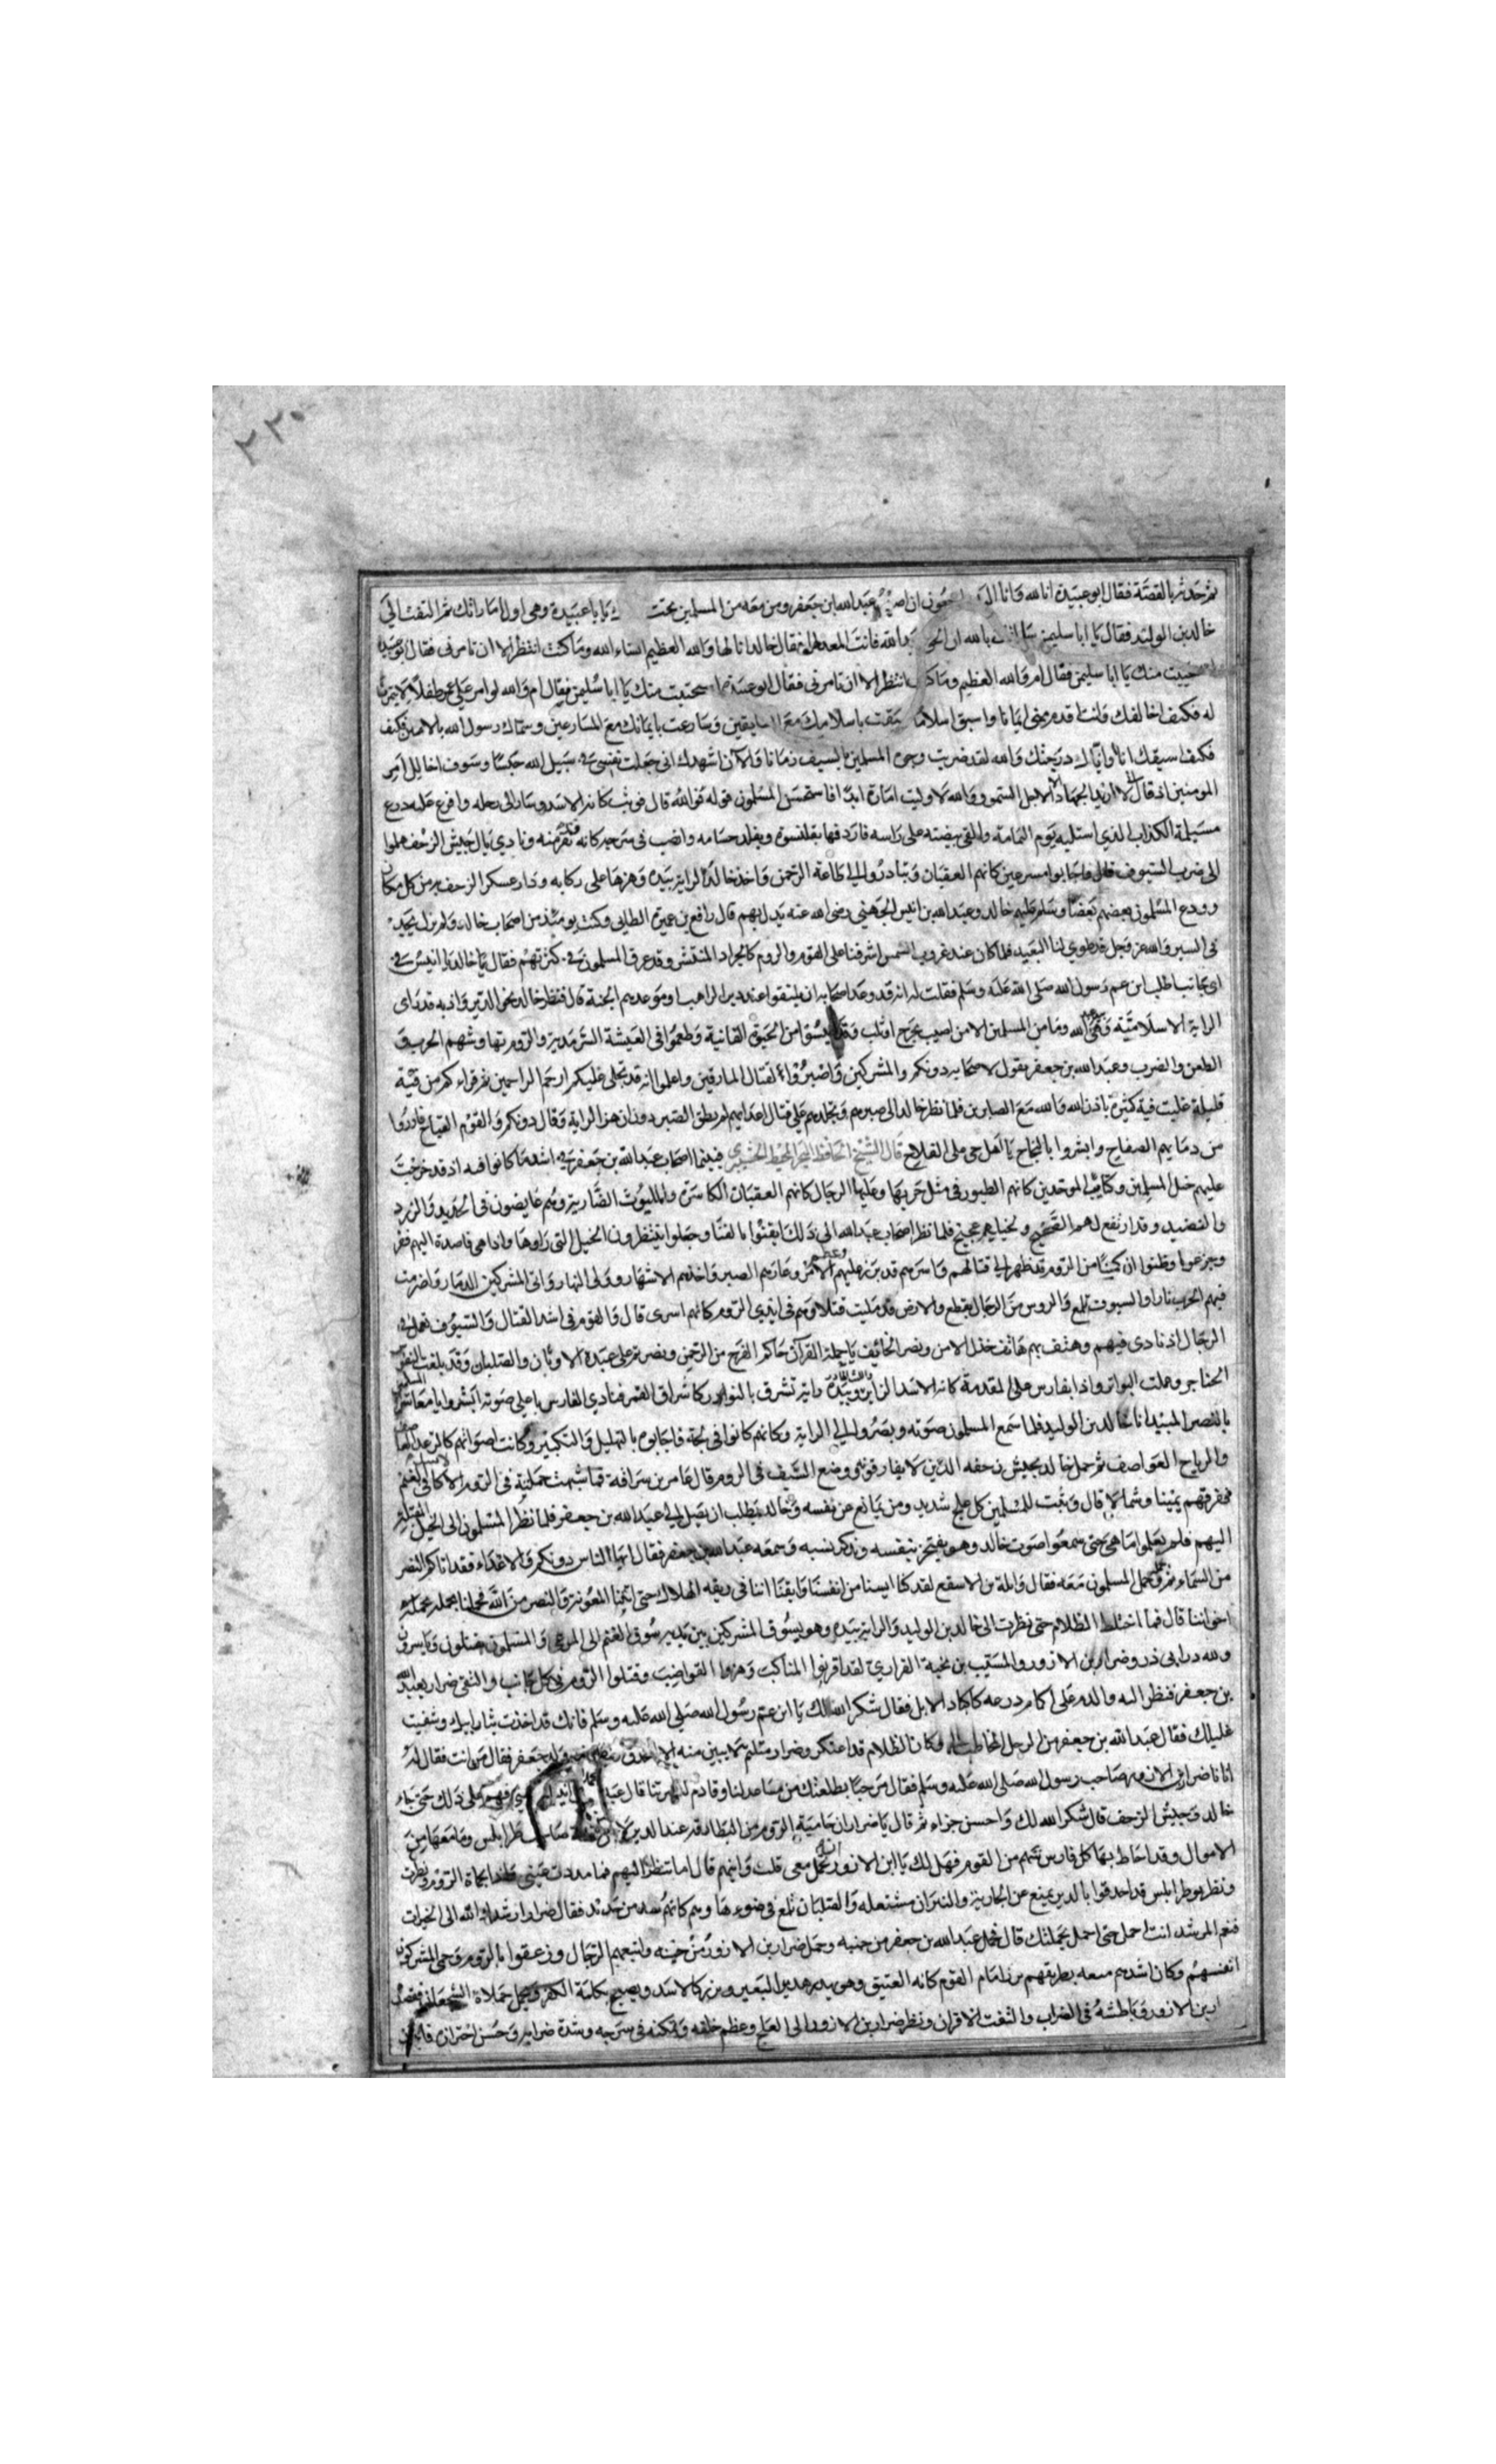 ٢٢٠
ثم حدثه بالقصة فقال ابو عبيدة انا لله وانا اليه راجعون ان اصيب عبدالله ابن جعفر ومن معه من المسلمين تحت يا با عبيدة وهى اول امارتك ثم التفت الى
خالد بن الوليد فقال يا ابا سليمن بالله الله فانت المعد لها فقال خالد انا لها والله العظيم انشاء الله وما كنت انتظر الا ان تامرنى فقال ابو عبيدة
منك يا ابا سليمن فقال ام والله العظيم وما كنت انتظر الا ان تامرنى فقال ابو عبيدة استحييت منك يا ابا سليمن فقال ام والله لو امر على عمر طفلا
له فكيف اخالفك وانت اقدم منى ايمانا واسبق اسلاما سبقت باسلامك مع السابقين وسارعت بايمانك مع المسارعين وسماك رسول الله بالامين فكيف
فكيف اسبقك انا وانال درجتك والله لقد ضربت وجه المسلمين بالسيف زمانا والآن اشهدك انى جعلت نفسى فى سبيل الله حبسا وسوف اخالل امير
المومنين اذ قال لا اريد الجهاد الا لاجل السمو والله لا وليت امارة ابدا فاستحسن المسلمون قوله قواه الله قال فوثب كانه الاسد وسار الى رحله وافرغ عليه درع
مسيلمة الكذاب الذي استلبه يوم اليمامة والقى بيضته على راسه فاردفها بقلنسوة وتقلد حسامه وانصب فى سرجه كانه ونادي يال جيش الزحف هلموا
الى ضرب السيوف قال فاجابوا مسرعين كانهم العقبان وتبادروا الى طاعة الرحمن واخذ خالد الراية بيده وهزها على ركابه ودار عسكر الزحف به من كل مكان
وودع المسلمون بعضهم بعضا وسلم عليهم خالد وعبد الله بن انيس الجهني رضى الله عنه يدل بهم قال رافع بن عميرة الطايى وكنت يومئذ من اصحاب خالد ولم نزل نجد
فى السير والله عز وجل قد طوي لنا البعيد فلما كان عند غروب الشمس اشرفنا على القوم والروم كالجراد المنتشر وقد غرق المسلمون فى كثرتهم فقال خالد يا ابن انيس فى
اى جانب اطلب ابن عم رسول الله صلى الله عليه وسلم فقلت له انه قد وعد اصحابه ان يلتقوا عند دير الراهب او موعدهم الجنة قال فنظر خالد نحو الدير واذا به قد راى
الراية الاسلامية وهى والله وما من المسلمين الا من اصيب بجرح وقد ايسوا من الحيوة الفانية وطمعوا فى العيشة السرمدية والروم بها وشهم الحرب و
الطعن والضرب وعبد الله بن جعفر يقول لاصحابه دونكم والمشركين واصبروا لقتال المارقين واعلموا انه قد تجلى عليكم ارحم الراحمين ثم قراء كم من فئة
قليلة غلبت فئة كثيرة باذن الله والله مع الصابرين فلما نظر خالد الى صبرهم وتجلدهم على قتال اعدايهم لم يطق الصبر دون ان هز الراية وقال دونكم والقوم القباح فارووا
من دمايهم الصفاح وابشروا بالنجاح يا اهل حى على الفلاح قال الشيخ الحافظ فبينما اصحاب عبد الله بن جعفر فى اشد ما كانوا فيه اذ قد خرجت
عليهم خيل المسلمين وكتايب الموحدين كانهم الطيور فى مثل حربها وعليها الرجال كانهم العقبان الكاسرة والليوث الضارية وهم غايصون فى الحديد والزرد
والنضيد وقد ارتفع لهم الضجيج ولخيلهم عجيج فلما نظر اصحاب عبد الله الى ذلك ايقنوا بالفنا وجعلوا ينظرون الخيل التى راوها واذا هى قاصدة اليهم ففز
وجزعوا وظنوا ان كمينا من الروم قد ظهر الى قتالهم وعظم الامر وعازهم الصبر واخذهم الانبهار وولى النهار واتى المشركين الدمار واضرمت
فيهم الحرب نارا والسيوف تلمع والروس من الرجال تقطع والارض قد مليت قتلا وهم فى ايدى الروم كانهم اسرى قال والقوم فى اشد القتال والسيوف تعمل فى
الرجال اذ نادى فيهم وهتف بهم هاتف خذل الامن ونصر الخائف يا حملة القرآن جاكم الفرج من الرحمن ونصرتم على عبدة الاوثان والصلبان وقد بلغت القلوب
الحناجر وعملت البواتر واذا بفارس على المقدمة كانه الاسد الزاير وبيده راية تشرق بالنوار كاشراق القمر فنادي الفارس باعلى صوته ابشروا يا معاشر المسلمين
بالنصر المبيد انا خالد بن الوليد فلما سمع المسلمون صوته وبصروا الى الراية وكانهم كانوا فى لجة فاجابوه بالتهليل والتكبير وكانت اصواتهم كالرعد القاصف
والرياح العواصف ثم حمل خالد بجيش زحفه الذين لا يفارقونه ووضع السيف فى الروم قال عامر بن سراقة فما شبهت حملته فى الروم الا كالاسد فى الغنم
ففرقهم يمينا وشمالا قال وثبت للمسلمين كل علج شديد ومن يمانع عن نفسه وخالد يطلب ان يصل الى عبد الله بن جعفر فلما نظر المسلمون الى الخيل المقبلة
اليهم فلم يعلموا ما هى حتى سمعوا صوت خالد وهو يفتخر بنفسه ويذكر نسبه وسمعه عبد الله بن جعفر فقال ايها الناس دونكم والاعداء فقد اتاكم النصر
من السماء ثم حمل المسلمون معه فقال واثلة بن الاسقع لقد كنا ايسنا من انفسنا وايقنا اننا فى ربقه الهلاك حتى اتتنا المعونة والنصر من الله فحملنا بحملة
اخواننا قال فما اختلط الظلام حتى نظرت الى خالد بن الوليد والراية بيده وهو يسوق المشركين بين يديه سوق الغنم الى المرعى والمسلمون يقتلون وياسرون
ولله در ابى ذر وضرار بن الازور والمسيب بن نجية الفزاري لقد اقرنوا المناكب وهزوا القواضب وقتلوا الروم فى كل جانب والتقى ضرار بعبد الله
بن جعفر فنظر اليه والدم على اكمام درعه كاكباد الابل فقال شكر الله لك يا ابن عم رسول الله صلى الله عليه وسلم فانك قد اخذت بثار ابيك وشفيت
غليلك فقال عبد الله بن جعفر من الرجل المخاطب لى وكان الظلام قد اعتكر وضرار متلثم لا يبين منه الا جعفر فقال من انت فقال له
انا ضرار ابن الازور صاحب رسول الله صلى الله عليه وسلم فقال مرحبا بطلعتك من مساعد لنا وقادم لنصرتنا قال على ذلك حتى جاء
خالد وجيش الزحف قال شكر الله لك واحسن جزاء ثم قال يا ضرار ان حامية الروم من البطارقة عند الدير صاحب طرابلس وما معها من
الاموال وقد احاط بها كل فارس شهم من القوم فهل لك يا ابن الازور ان تحمل معى قلت واينهم قال اما تنظر اليهم فما مددت عينى فاذا بحماة الروم وبطرت
ونظر يوم طرابلس قد احدقوا بالدير يمنع عن الجارية والنيران مشتعله والصلبان تلمع فى ضوءها وهم كانهم سد من حديد فقال ضرار ارشدك الله الى الخيرات
فنعم المرشد انت احمل حتى احمل بحملتك قال فحمل عبد الله بن جعفر من جنبه وحمل ضرار بن الازور من جنبه واتبعهم الرجال وزعقوا بالروم وحمى المشركون
انفسهم وكان اشدهم منعه بطريقهم برز امام القوم كانه العتيق وهو يهدر هدير البعير ويزير كالاسد ويصيح بكلمة الكفر وحمل حملاة الشجعان فقصد
ابن الازور وباطشه فى الضراب والتفت الاقران ونظر ضرار بن الازور الى العلج وعظم خلقه وتمكنه فى سرجه وشدة ضرابه وحسن احترازه فاخذ